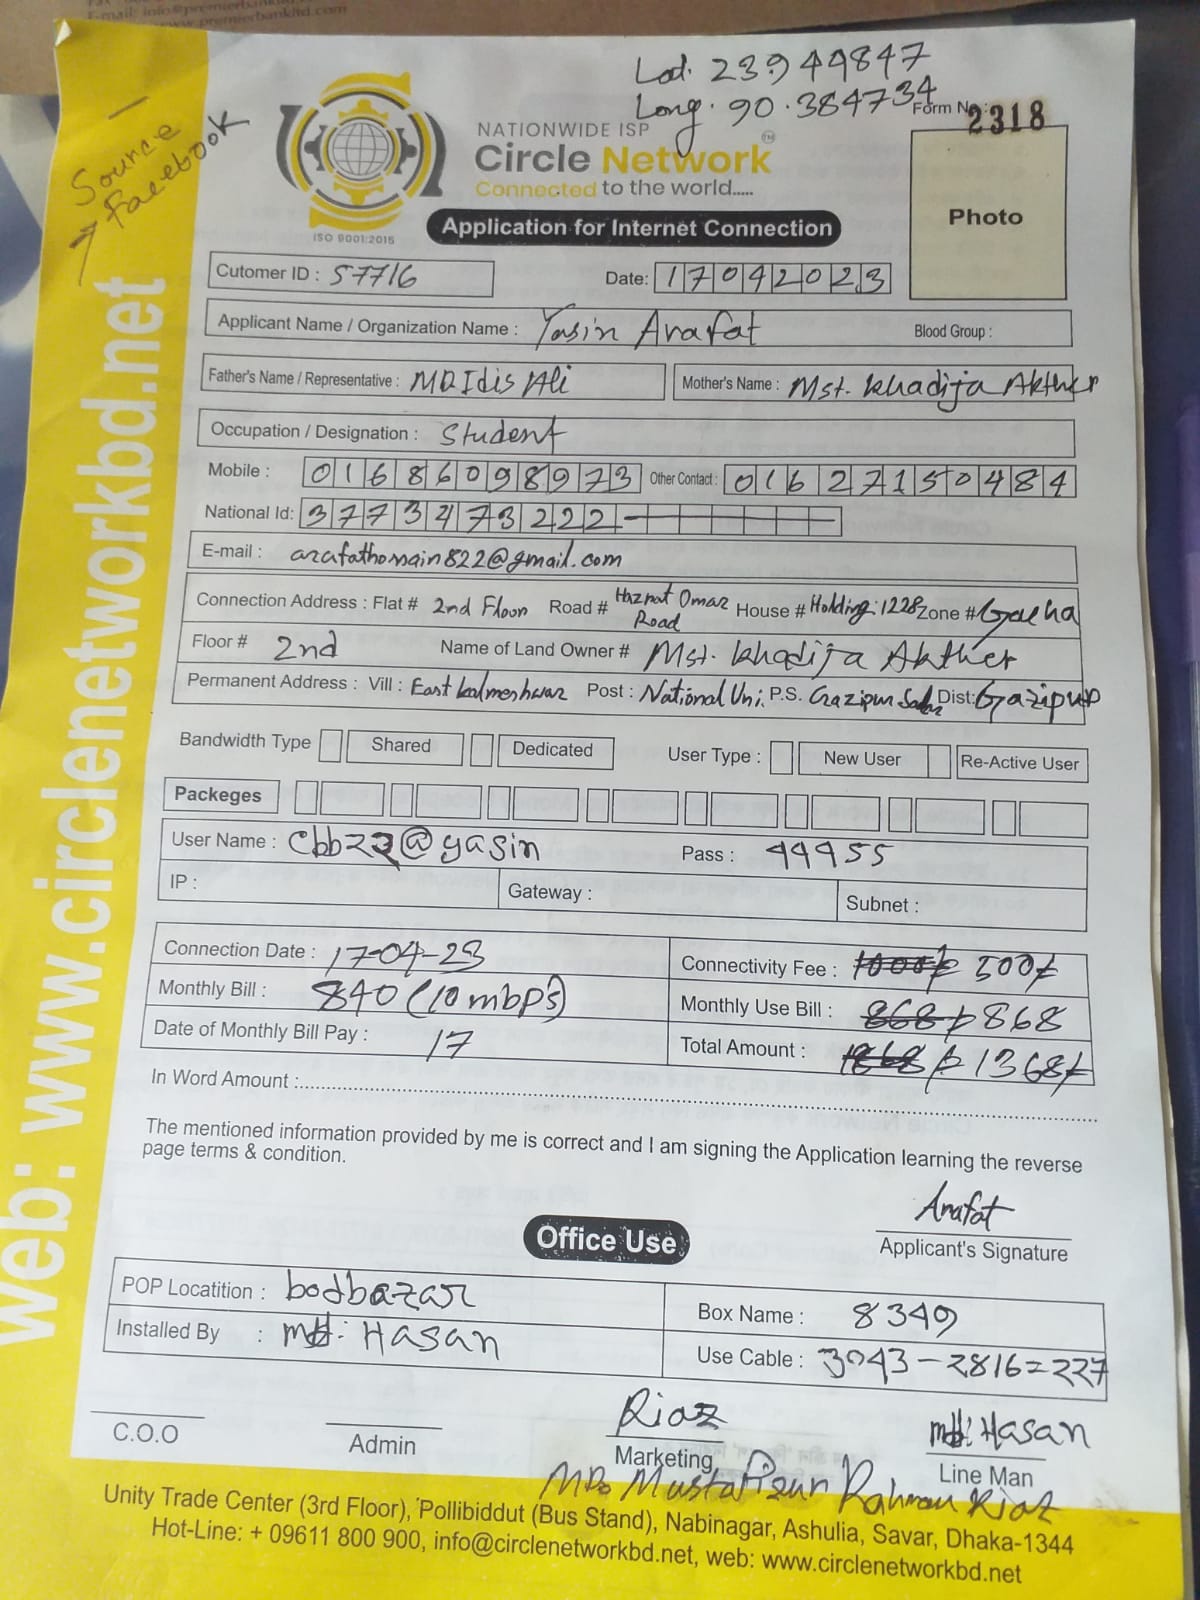 E-mail: info@premierbankbd.
www.premierbankbd.com
Lat. 23.949847
Long. 90.384734
Form No.: 2318
Source
Facebook
NATIONWIDE ISP
Circle Network™
Connected to the world.....
ISO 9001:2015
Application for Internet Connection
Photo
Cutomer ID : 57716 Date: 17042023
Applicant Name / Organization Name : Yasin Arafat Blood Group :
Father's Name / Representative : MD Idis Ali Mother's Name : Mst. Khadija Akther
Occupation / Designation : Student
Mobile : 01686098973 Other Contact : 01627150484
National Id: 3773473222
E-mail : arafathossain822@gmail.com
Connection Address : Flat # 2nd Floor Road # Hazrat Omar Road House # Holding: 1228 Zone # Gacha
Floor # 2nd Name of Land Owner # Mst. Khadija Akther
Permanent Address : Vill : East kalmeshwar Post : National Uni. P.S. Gazipur Sadar Dist: Gazipur
Bandwidth Type Shared Dedicated User Type : New User Re-Active User
Packeges
User Name : cbb22@yasin Pass : 44455
IP : Gateway : Subnet :
Connection Date : 17-04-23 Connectivity Fee : 1000/= 500/=
Monthly Bill : 840 (10 mbps) Monthly Use Bill : 868/= 868
Date of Monthly Bill Pay : 17 Total Amount : 1868/= 1368/=
In Word Amount :
The mentioned information provided by me is correct and I am signing the Application learning the reverse
page terms & condition.
Arafat
Applicant's Signature
Office Use
POP Locatition : bodbazar Box Name : 8349
Installed By : md: Hasan Use Cable : 3043-2816=227
Riaz md: Hasan
C.O.O Admin Marketing Line Man
MD. Mustafizur Rahman Riaz
Unity Trade Center (3rd Floor), Pollibiddut (Bus Stand), Nabinagar, Ashulia, Savar, Dhaka-1344
Hot-Line: + 09611 800 900, info@circlenetworkbd.net, web: www.circlenetworkbd.net
web: www.circlenetworkbd.net